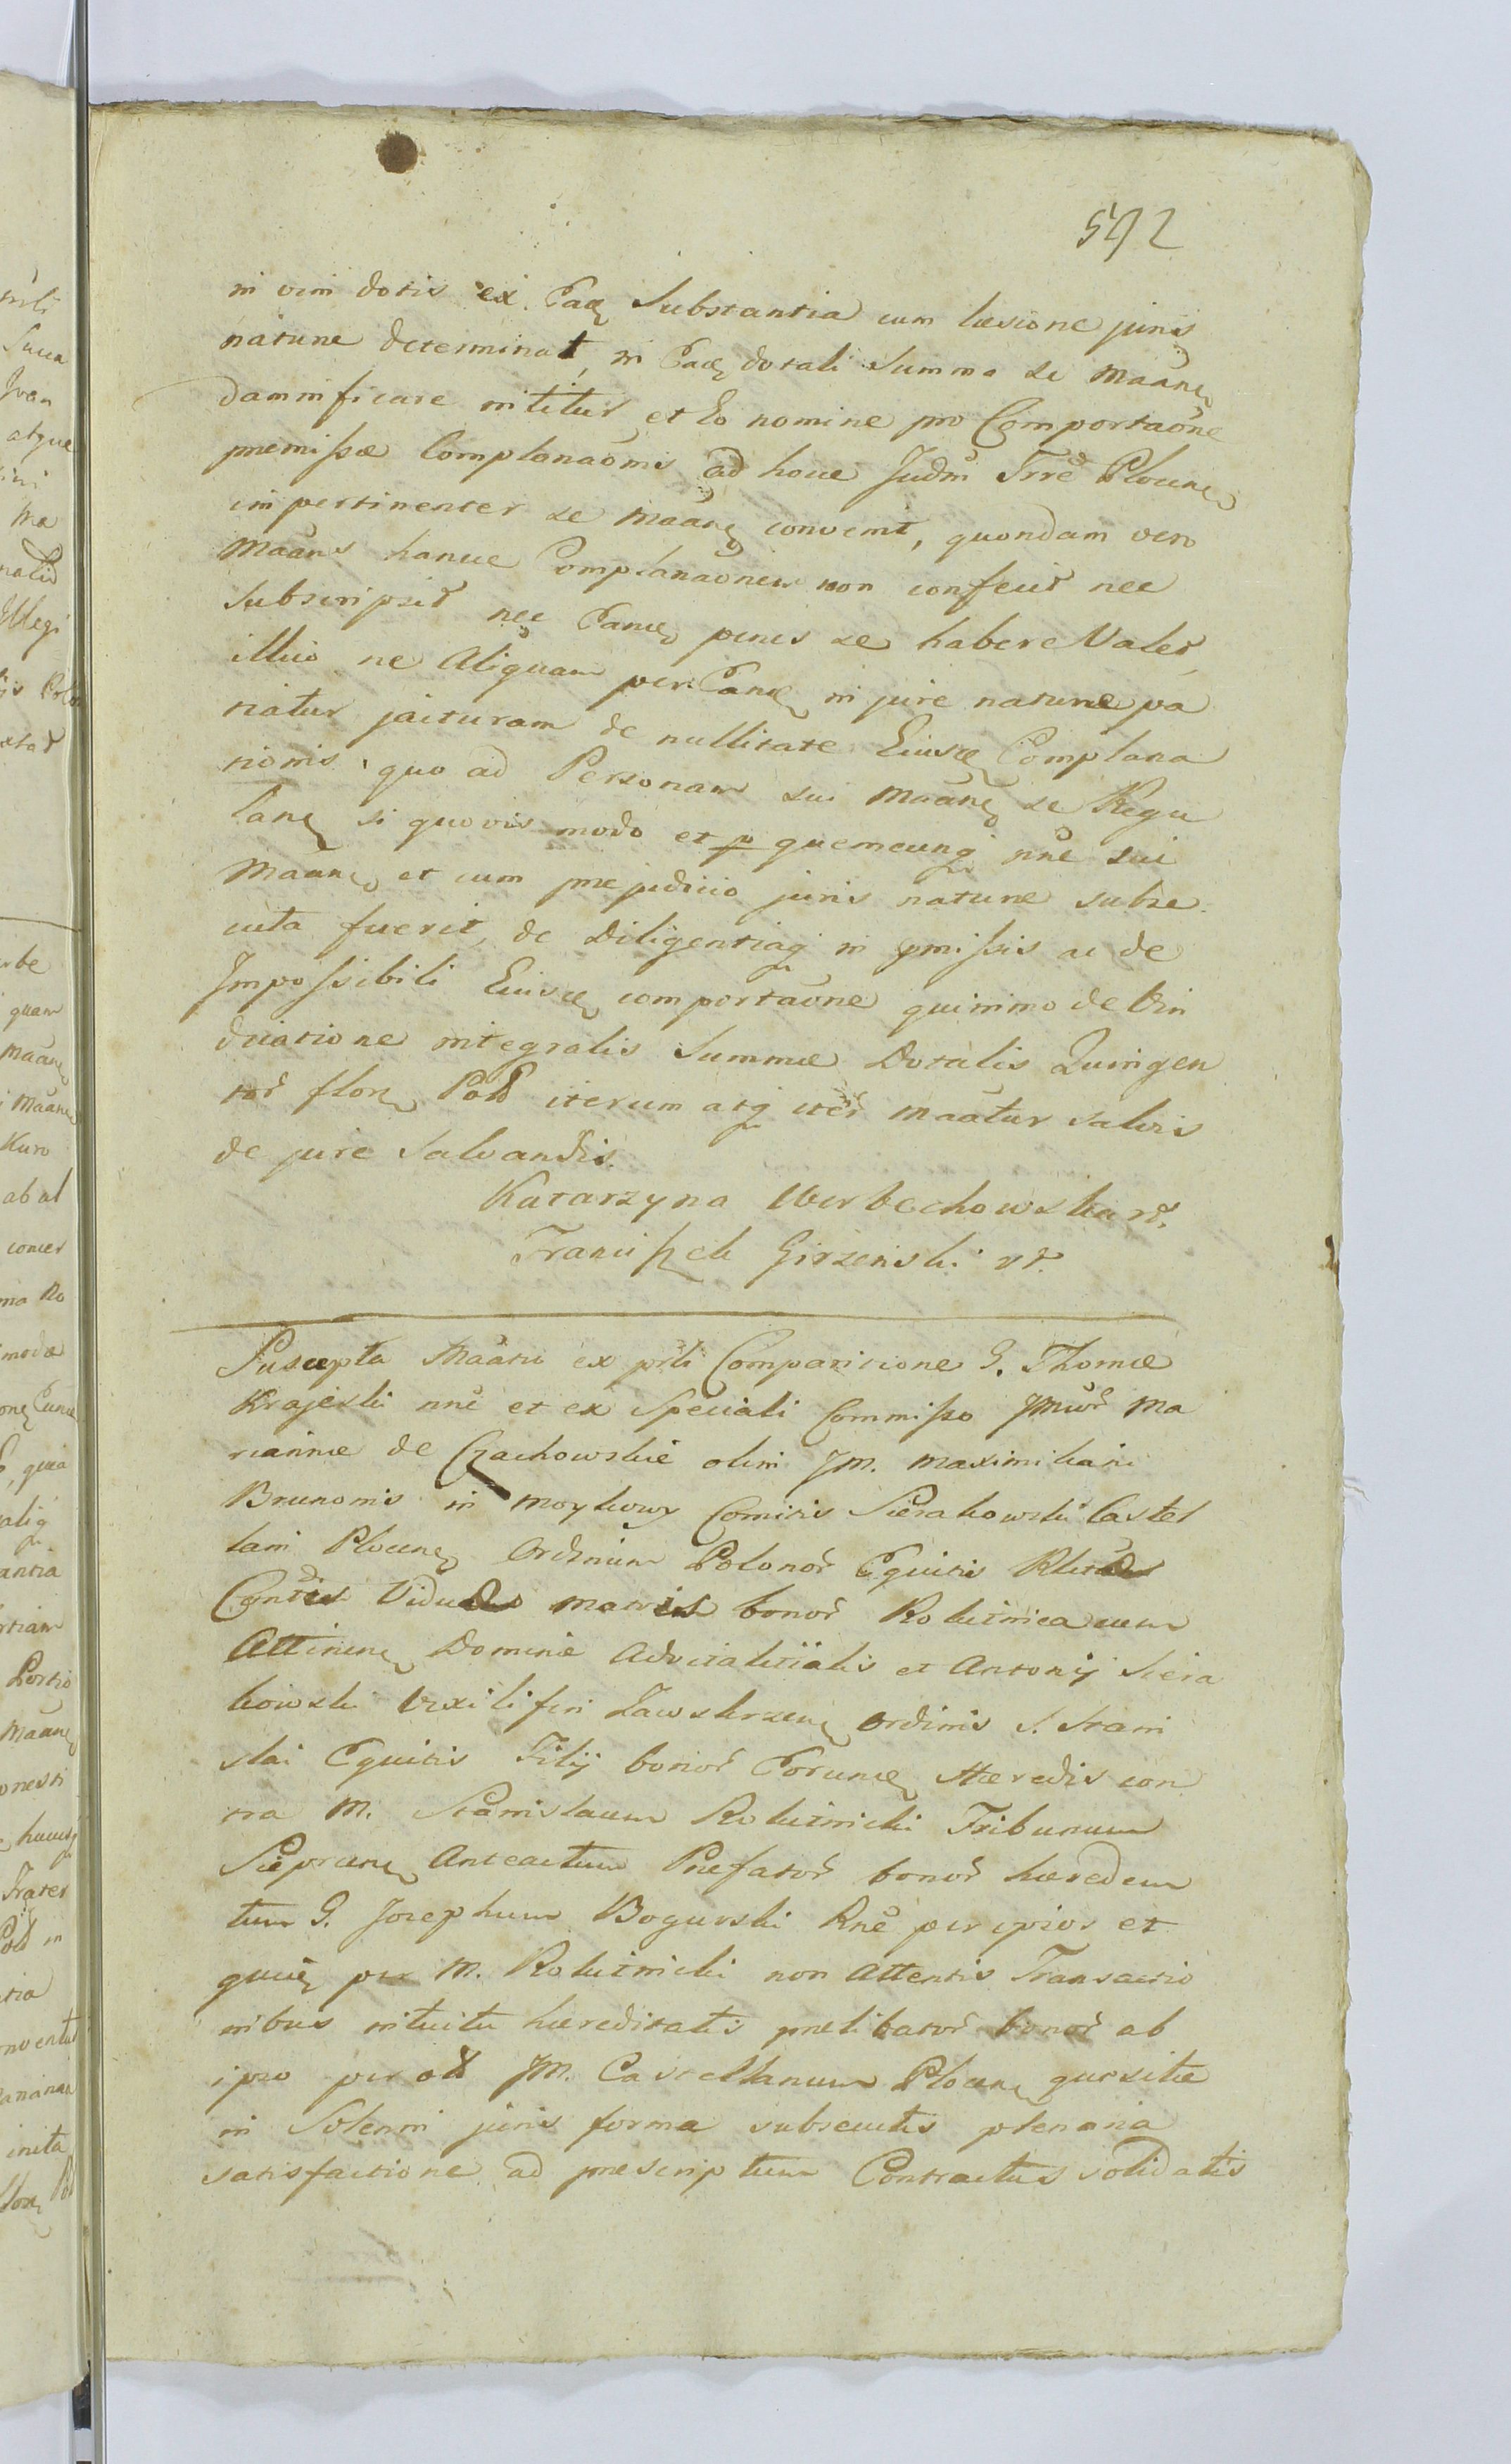 592
in vim dotis ex Eaq Substantia cum læsione juris
naturæ determinat, in Eaq dotali Summa se Maãne
damnificare nititur et Eo nomine pro Comportaõne
premissæ Complanaõnis ad hocce Judm Trre Plocene
impertinenter se Maãne convenit, quondam vero
Maãns hancce Complanaõnem non confecit nec
Subscripsit nec Eance penes se habere Valet
illico ne Aliquam per Eance in jure naturæ pa
tiatur jacturam de nullitate Eiusce Complana
tionis quo ad Personam sui Maãne se Regu
lane si quovis modo et p quemcunq nne sui
Maãne et cum præjudicio juris naturæ subse
cuta fuerit, de Diligentiaq in pmissis ac de
Impossibili Eiusce comportaõne quinimo de Vin
dicatione integralis Summæ Dotalis Quingen
tor flore Pold iterum atq iter Maãtur salvis
de jure Salvandis.
Katarzyna Werbechowska rt.
Franciszek Girzenski rt.
Suscepta Maãtio ex prli Comparitione G. Thomæ
Krajeski nne et ex Speciali Commisso JMor Ma
riannæ de Czachowskie olim JM. Maximiliani
Brunonis in Moykowy Comitis Sierakowski Castel
lani Plocene Ordinum Polonor Equitis
Viduæ Matris bonor Rokitnica cum
Attinene Dominæ Advitalitialis et Antonij Siera
kowski Vexiliferi Zawskrzene Ordinis S. Stani
slai Equitis Filij bonor Eorunce Hæredis con
tra M. Stanislaum Rokitnicki Tribunum
Sieprcene Anteactum Prefator bonor hæredem
tum G. Josephum Bogurski Rne per ipsos et
quia per M. Rokitnicki non Attentis Transactio
nibus intuitu hæreditatis prælibator bonor ab
ipso per old JM. Castellanum Plocene quæsitæ
in Solenni juris forma subsecutis plenaria
satisfactione ad prescriptum Contractus solidatis